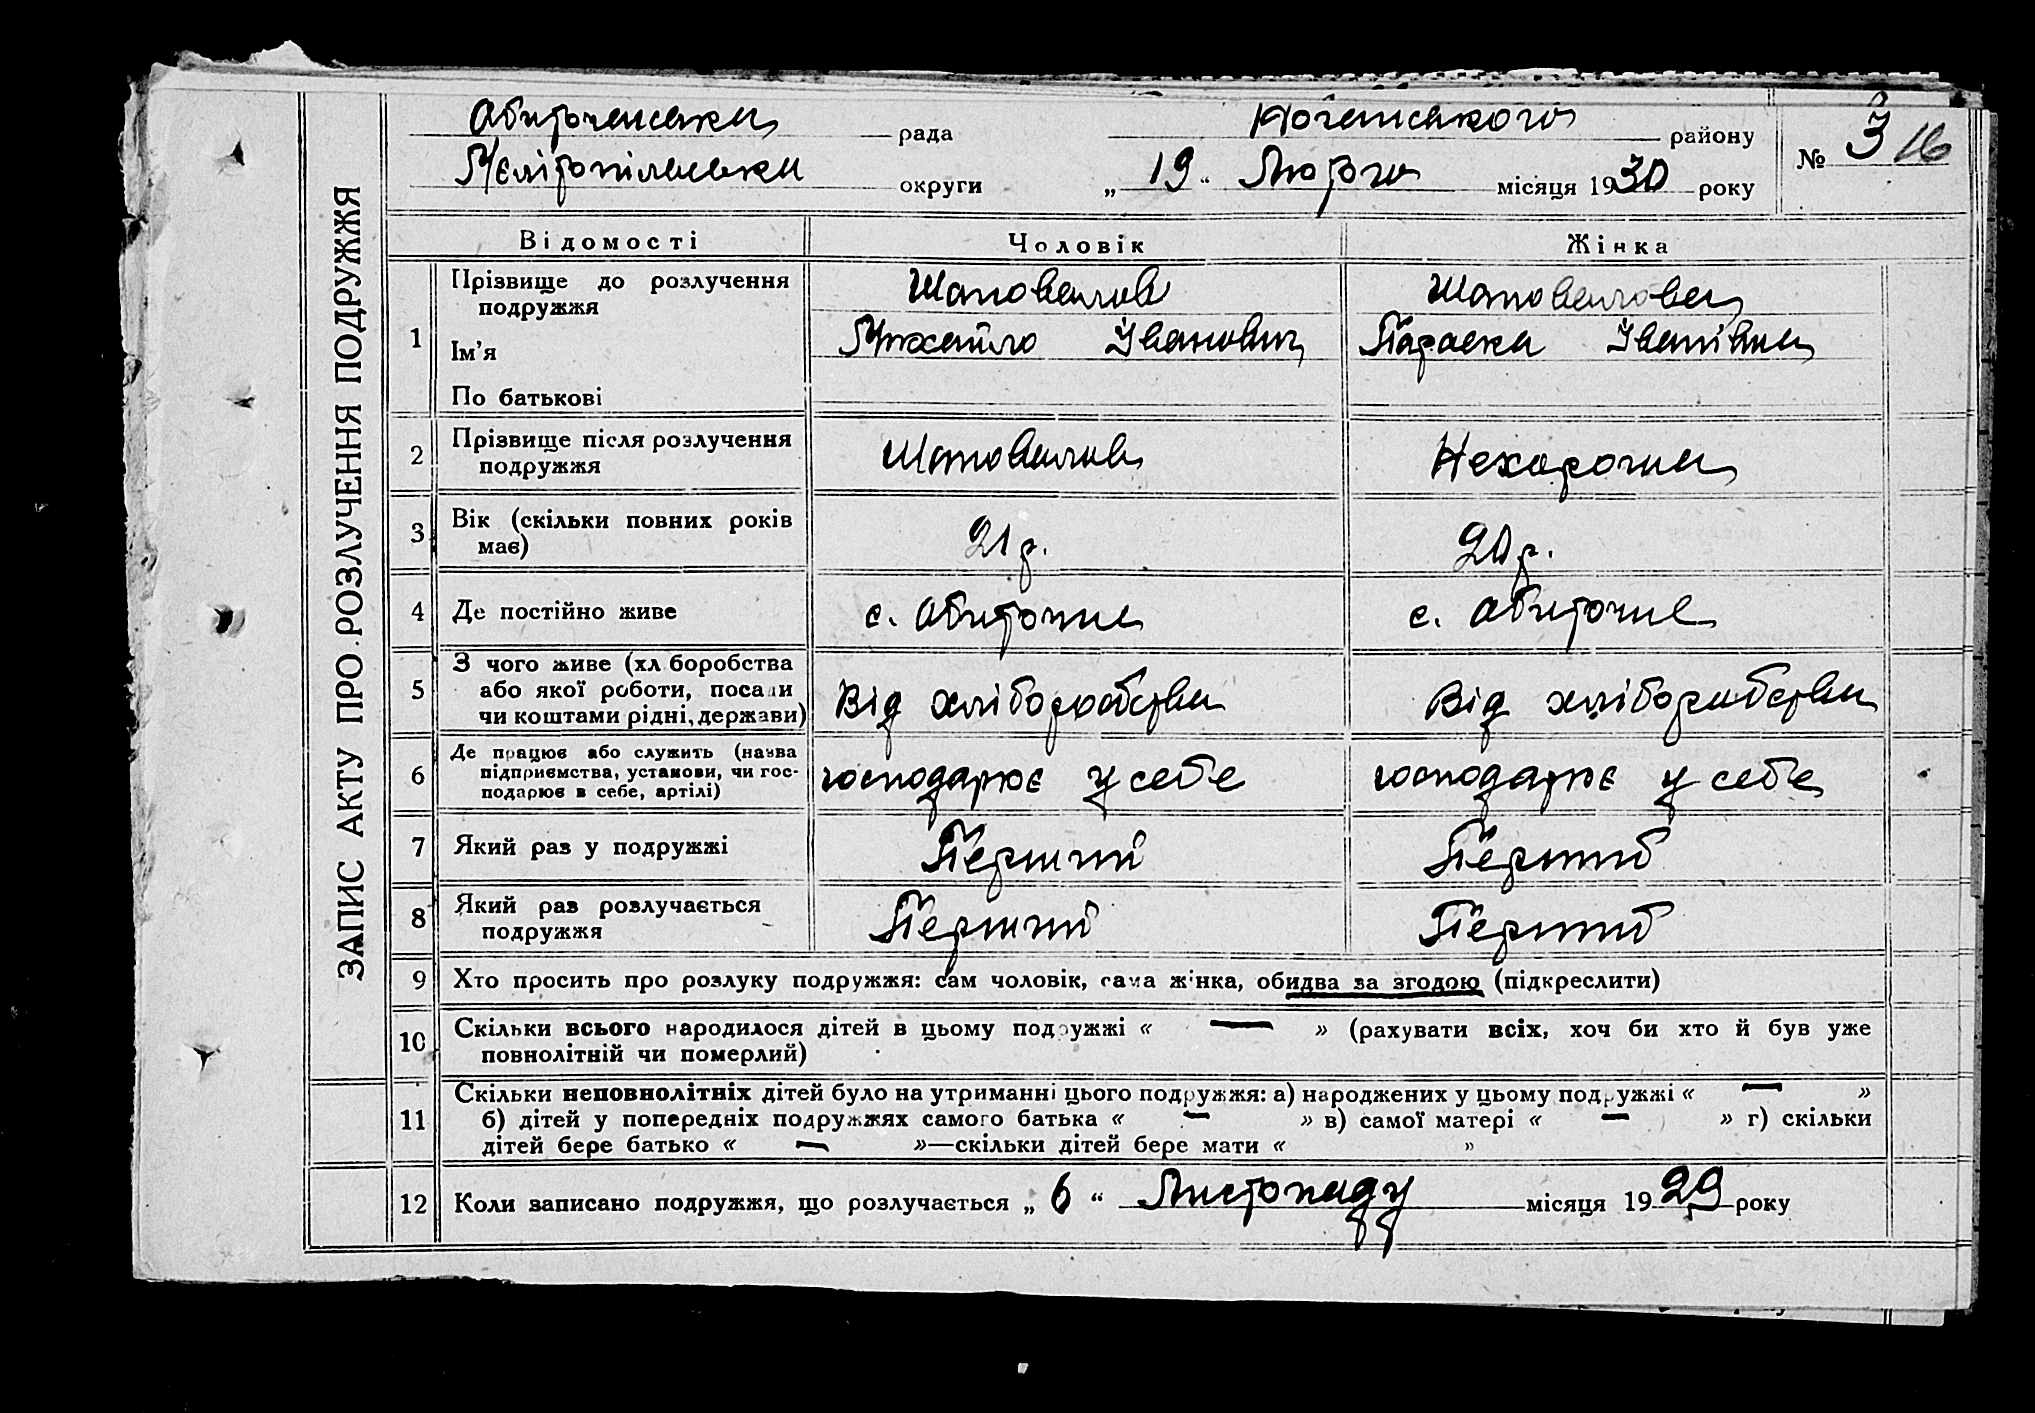 ЗАПИС АКТУ ПРО РОЗЛУЧЕННЯ ПОДРУЖЖЯ
Обиточенська рада Ногайського району № 3 16
Меліто­пільська округи „ 19 “ Лютого місяця 1930 року
Відомості Чоловік Жінка
1 Прізвище до розлучення подружжя Шаповалов Шаповалова
Ім’я Михайло Іванович Параска Іванівна
По батькові
2 Прізвище після розлучення подружжя Шаповалов Нехороша
3 Вік (скільки повних років має) 21 р. 20 р.
4 Де постійно живе с. Обиточне с. Обиточне
5 З чого живе (хліборобства або якої роботи, посади чи коштами рідні, держави) Від хліборобства Від хліборобства
6 Де працює або служить (назва підприємства, установи, чи господарює в себе, артілі) господарює у себе господарює у себе
7 Який раз у подружжі Перший Перший
8 Який раз розлучається подружжя Перший Перший
9 Хто просить про розлуку подружжя: сам чоловік, сама жінка, обидва за згодою (підкреслити)
10 Скільки всього народилося дітей в цьому подружжі « — » (рахувати всіх, хоч би хто й був уже
повнолітній чи померлий)
11 Скільки неповнолітніх дітей було на утриманні цього подружжя: а) народжених у цьому подружжі « — »
б) дітей у попередніх подружжях самого батька « — » в) самої матері « — » г) скільки
дітей бере батько « — »—скільки дітей бере мати « »
12 Коли записано подружжя, що розлучається „ 6 “ Листопаду місяця 1929 року